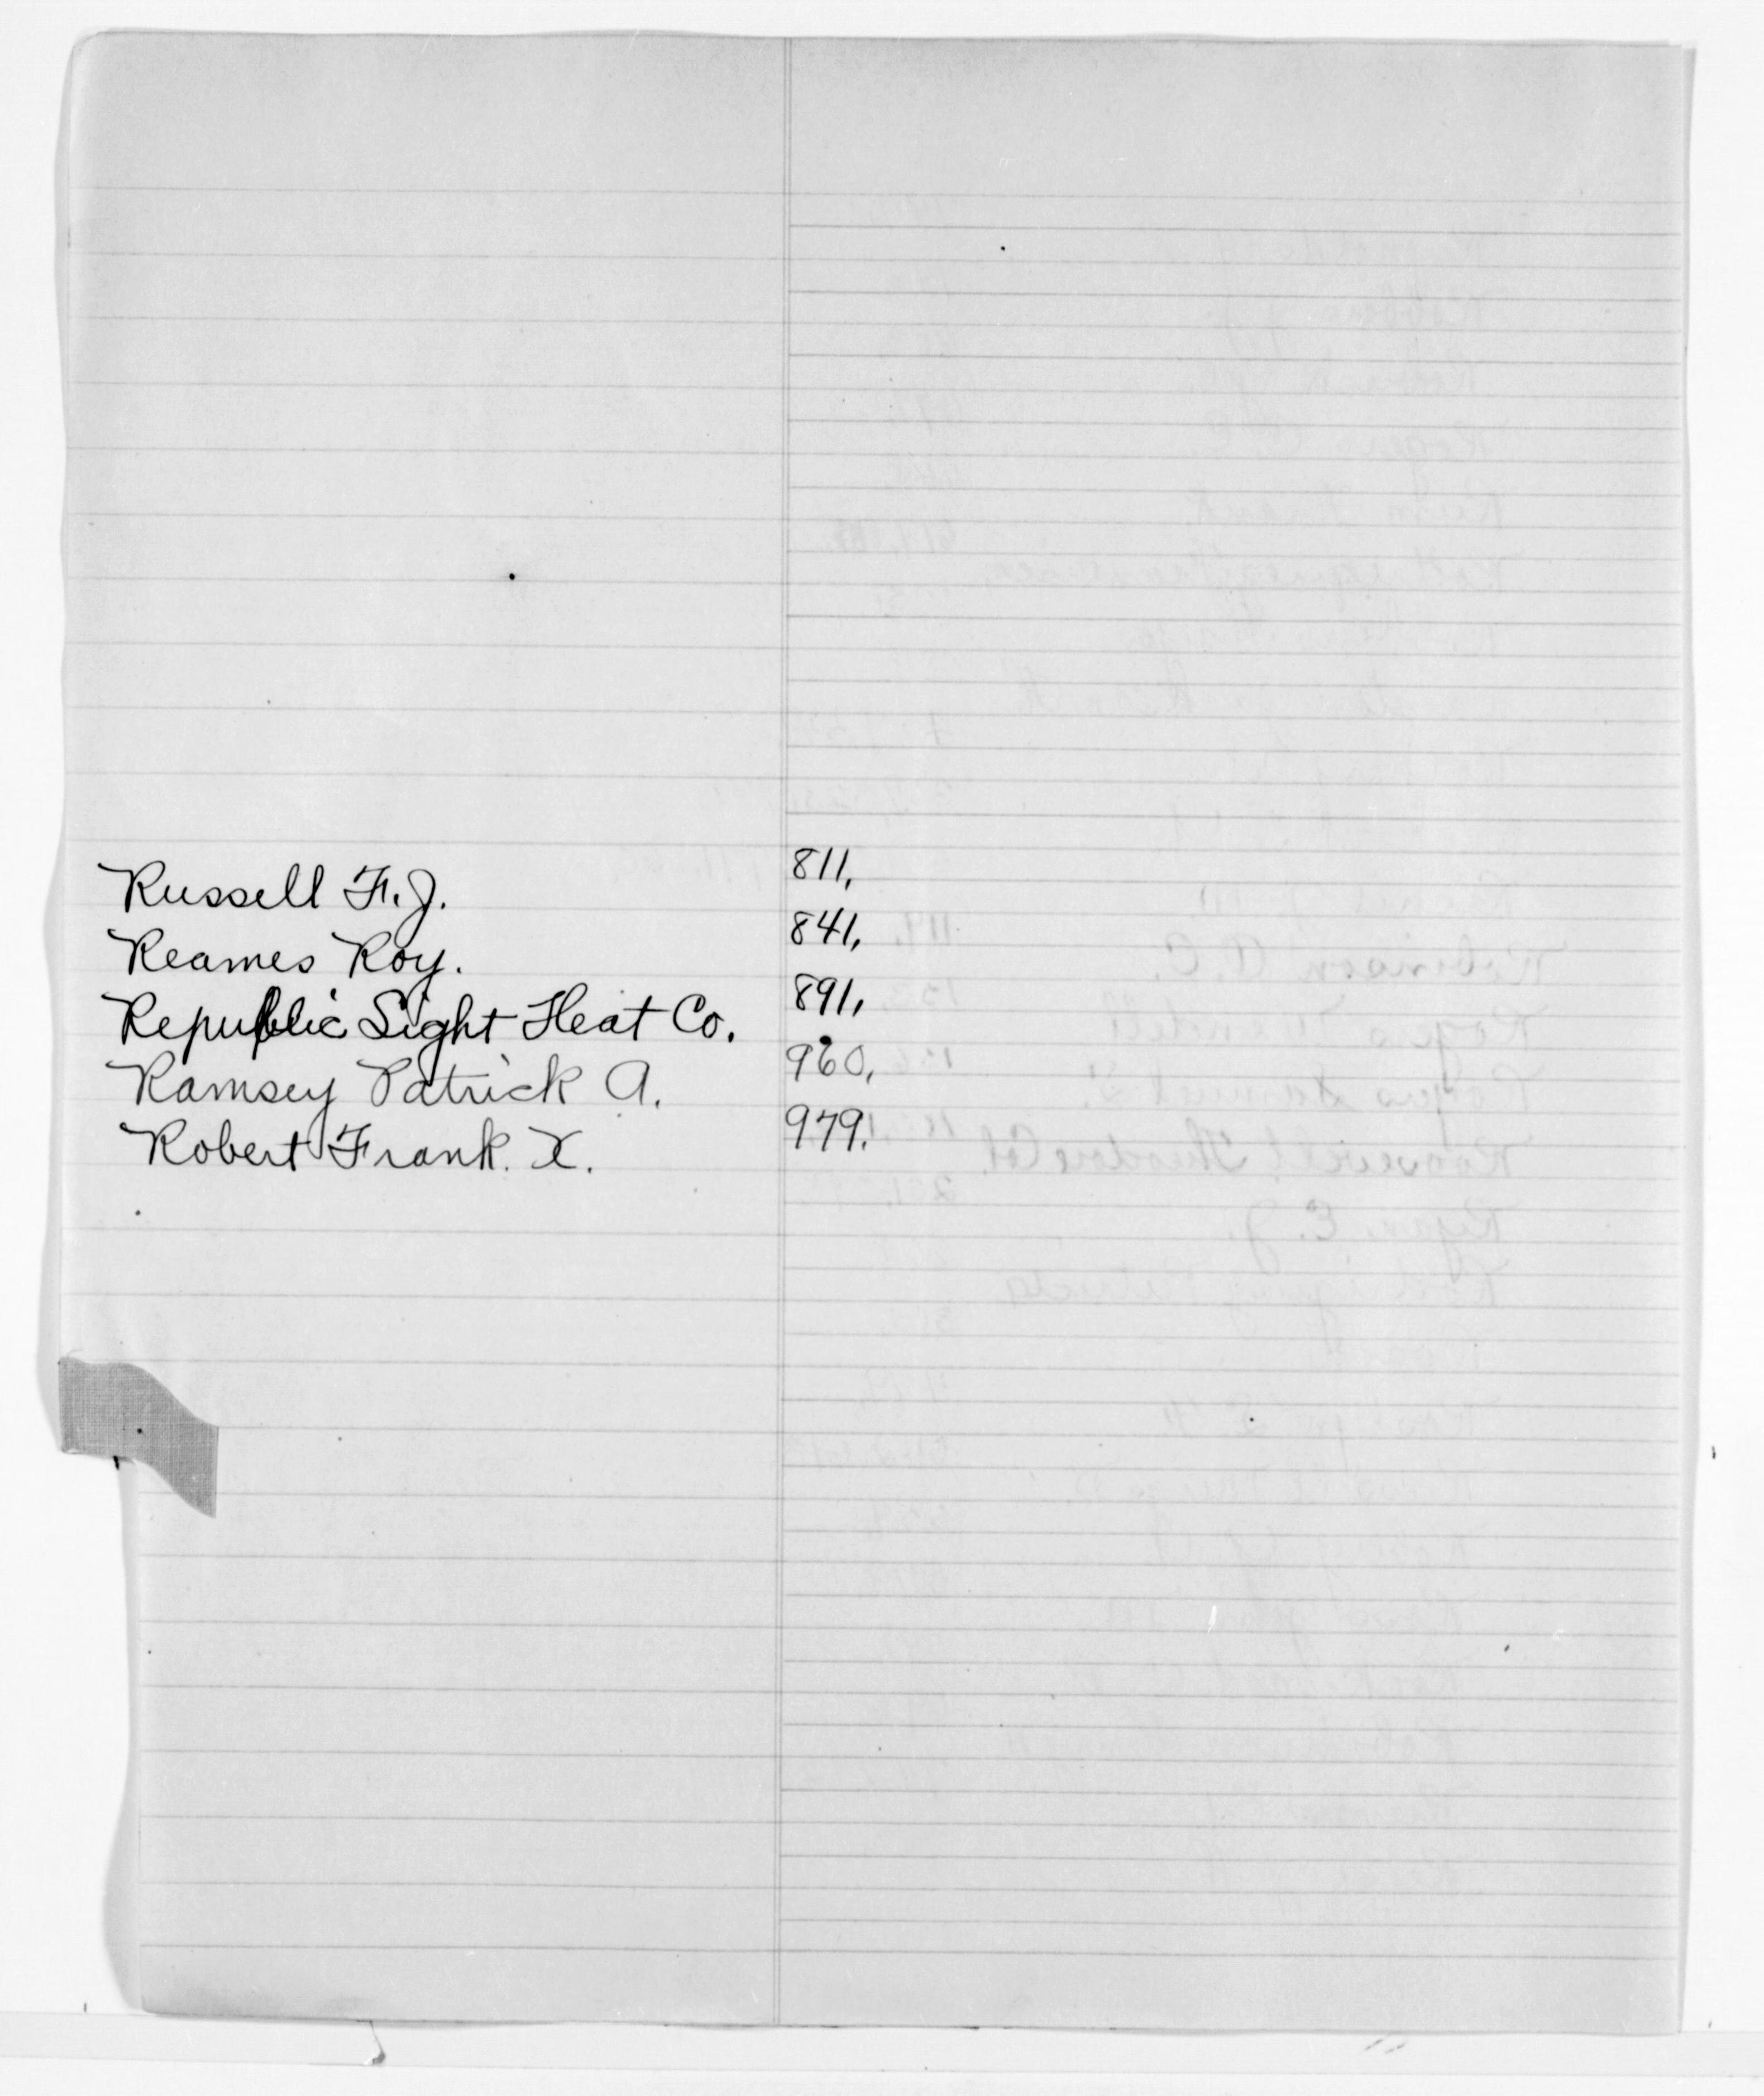 Russell F. J. 811,
Reames Roy. 841,
Republic Light Heat Co. 891,
Ramsey Patrick A. 960,
Robert Frank. X. 979.